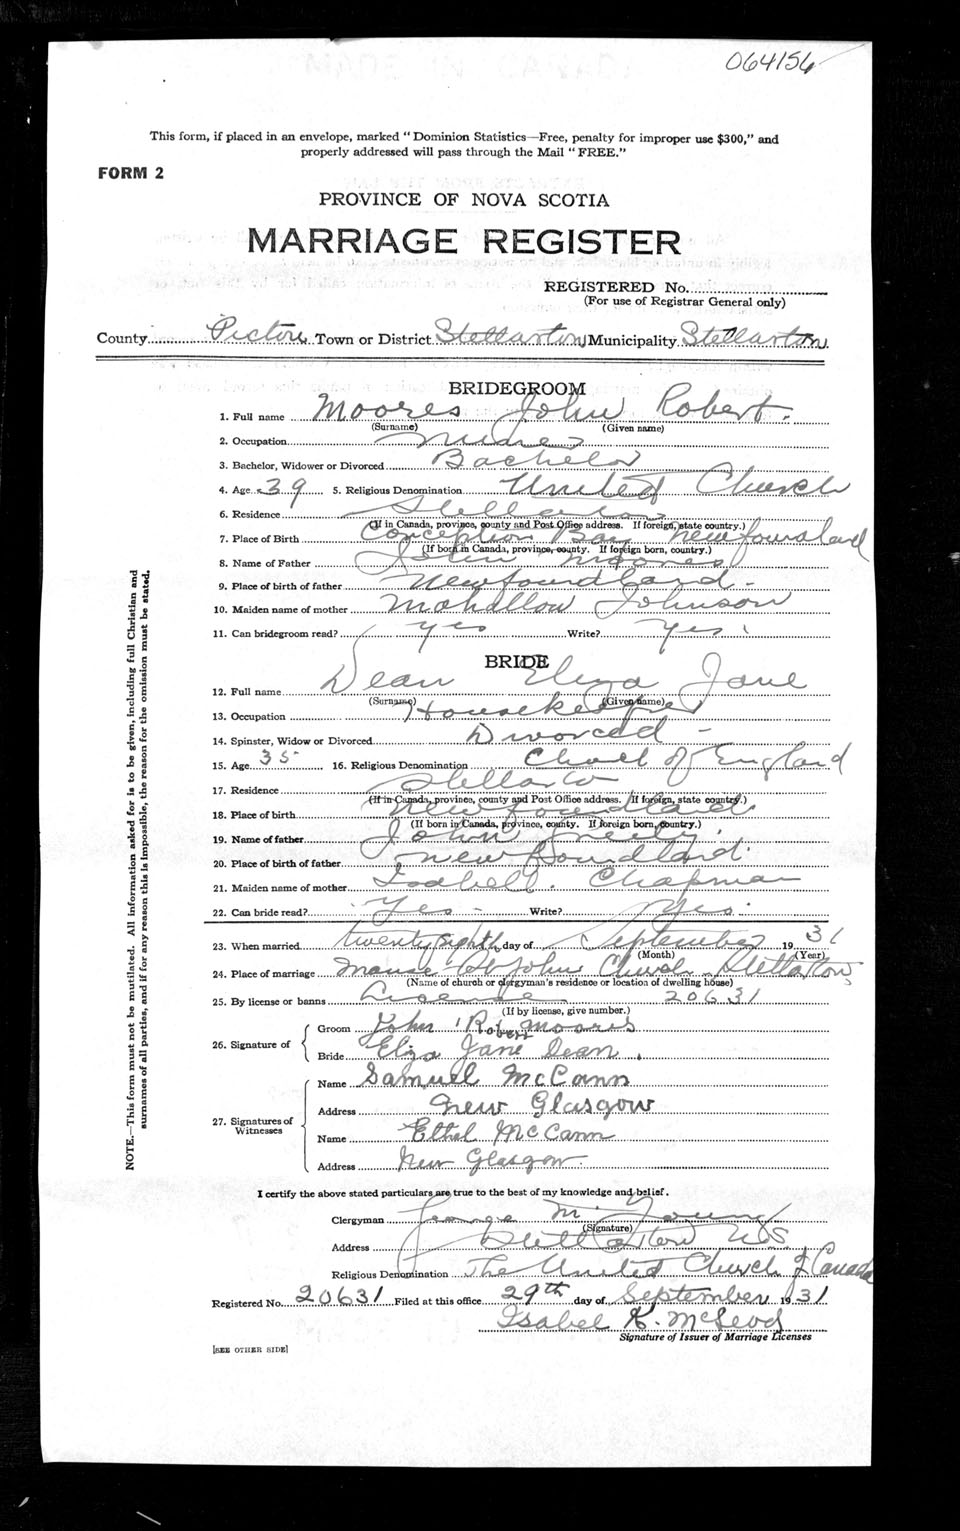 064156
This form, if placed in an envelope, marked "Dominion Statistics—Free, penalty for improper use $300," and
properly addressed will pass through the Mail "FREE."
FORM 2
PROVINCE OF NOVA SCOTIA
MARRIAGE REGISTER
REGISTERED No.
(For use of Registrar General only)
County Pictou Town or District Stellarton Municipality Stellarton
BRIDEGROOM
1. Full name Moores John Robert.
(Surname) (Given name)
2. Occupation Miner
3. Bachelor, Widower or Divorced Bachelor
4. Age 39 5. Religious Denomination United Church
6. Residence Stellarton
(If in Canada, province, county and Post Office address. If foreign, state country.)
7. Place of Birth Conception Bay Newfoundland
(If born in Canada, province, county. If foreign born, country.)
8. Name of Father John Moores
9. Place of birth of father Newfoundland -
10. Maiden name of mother Johnson
11. Can bridegroom read? yes Write? yes.
BRIDE
12. Full name Dean Eliza Jane
(Surname) (Given name)
13. Occupation Housekeeper
14. Spinster, Widow or Divorced Divorced -
15. Age 35 16. Religious Denomination Church of England
17. Residence Stellarton
(If in Canada, province, county and Post Office address. If foreign, state country.)
18. Place of birth Newfoundland
(If born in Canada, province, county. If foreign born, country.)
19. Name of father John
20. Place of birth of father Newfoundland.
21. Maiden name of mother Isabell. Chapman
22. Can bride read? Yes - Write? Yes.
23. When married twenty eighth day of September 1931
(Month) (Year)
24. Place of marriage Manse St John Church Stellarton
(Name of church or clergyman's residence or location of dwelling house)
25. By license or banns License 20631
(If by license, give number.)
26. Signature of
Groom John Robert Moores
Bride Eliza Jane Dean.
27. Signatures of Witnesses
Name Samuel McCann
Address New Glasgow
Name Ethel McCann
Address New Glasgow.
I certify the above stated particulars are true to the best of my knowledge and belief.
Clergyman George M. Young
(Signature)
Address Stellarton N.S
Religious Denomination The United Church of Canada
Registered No. 20631 Filed at this office 29th day of September 1931
Isabel K. McLeod
Signature of Issuer of Marriage Licenses
[SEE OTHER SIDE]
NOTE.—This form must not be mutilated. All information asked for is to be given, including full Christian and
surnames of all parties, and if for any reason this is impossible, the reason for the omission must be stated.